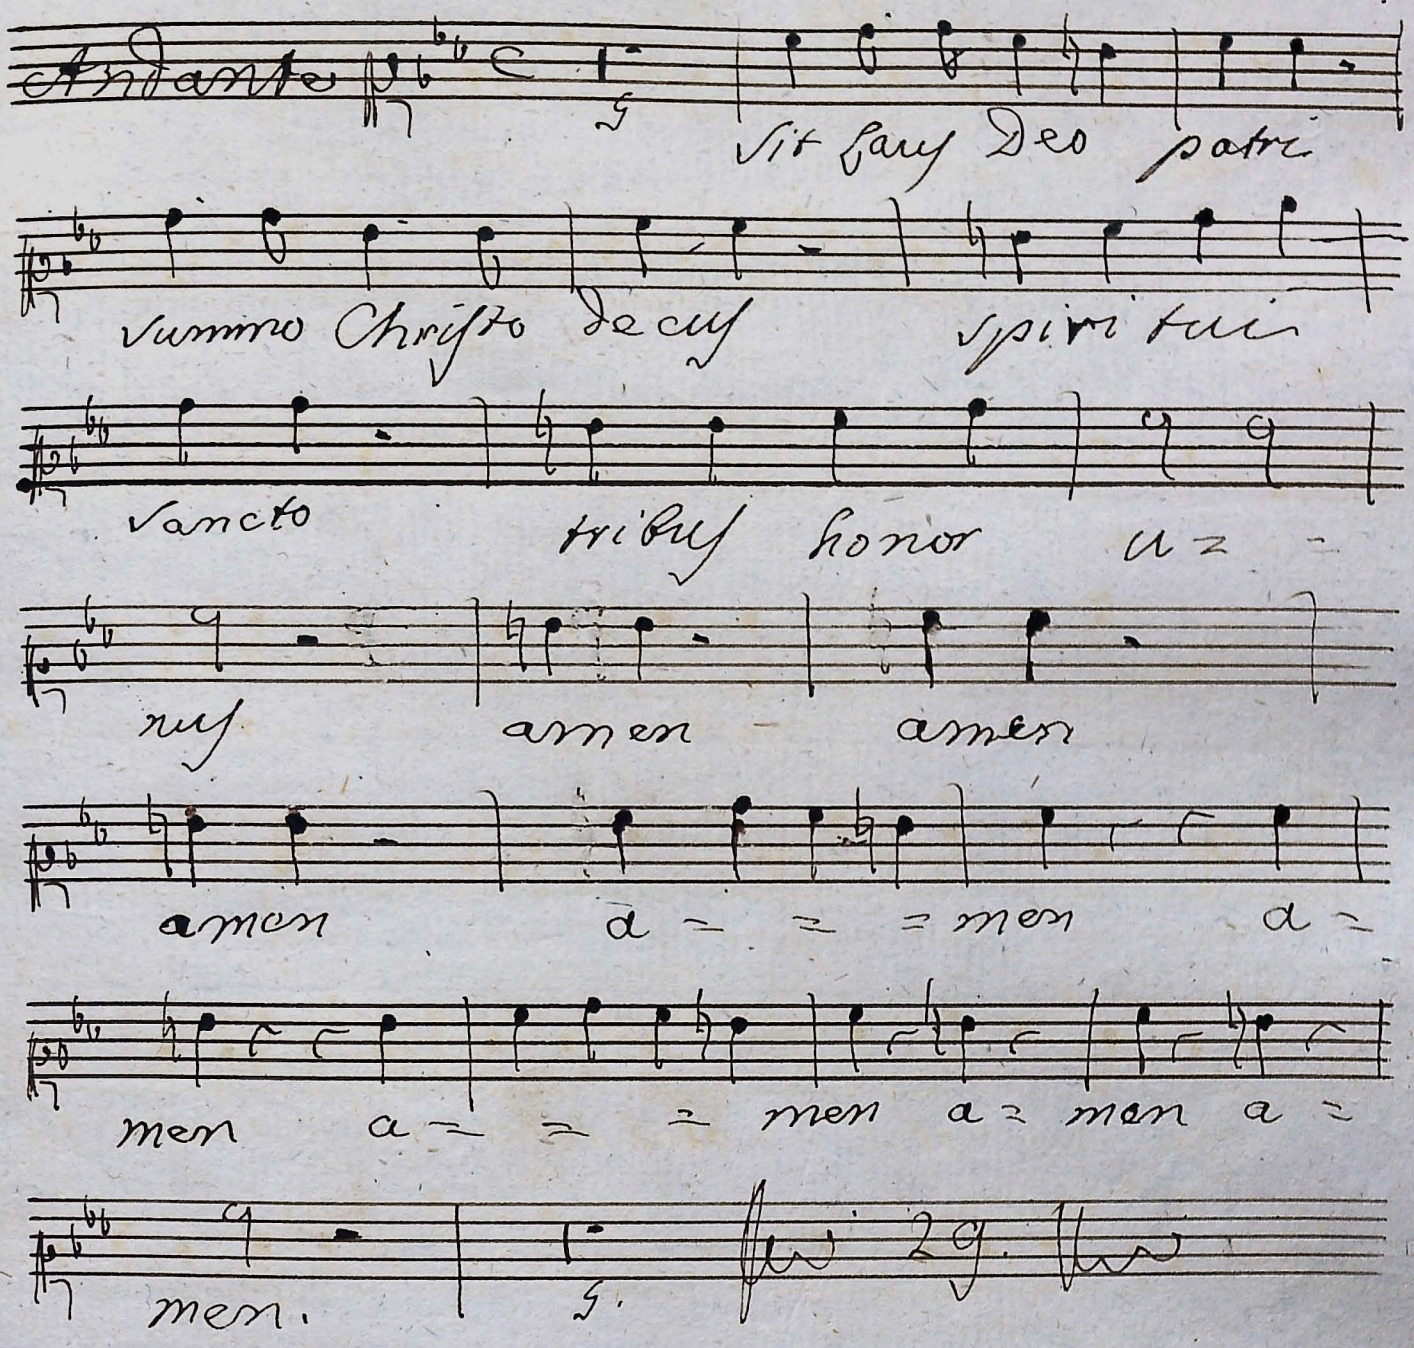 Andante C
5
sit laus Deo patri
summo Christo decus spiritui
sancto tribus honor u= =
nus amen - amen
amen a = = = men a =
men a = = = men a = men a =
men. 5. 29.